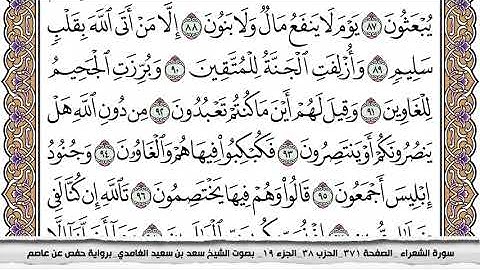 يُبْعَثُونَ ۝٨٧ يَوْمَ لَا يَنفَعُ مَالٌ وَلَا بَنُونَ ۝٨٨ إِلَّا مَنْ أَتَى اللَّهَ بِقَلْبٍ
سَلِيمٍ ۝٨٩ وَأُزْلِفَتِ الْجَنَّةُ لِلْمُتَّقِينَ ۝٩٠ وَبُرِّزَتِ الْجَحِيمُ
لِلْغَاوِينَ ۝٩١ وَقِيلَ لَهُمْ أَيْنَ مَا كُنتُمْ تَعْبُدُونَ ۝٩٢ مِن دُونِ اللَّهِ هَلْ
يَنصُرُونَكُمْ أَوْ يَنتَصِرُونَ ۝٩٣ فَكُبْكِبُوا فِيهَا هُمْ وَالْغَاوُونَ ۝٩٤ وَجُنُودُ
إِبْلِيسَ أَجْمَعُونَ ۝٩٥ قَالُوا وَهُمْ فِيهَا يَخْتَصِمُونَ ۝٩٦ تَاللَّهِ إِن كُنَّا لَفِي
سورة الشعراء _الصفحة ٣٧١_الحزب ٣٨_الجزء ١٩_ بصوت الشيخ سعد بن سعيد الغامدي_برواية حفص عن عاصم